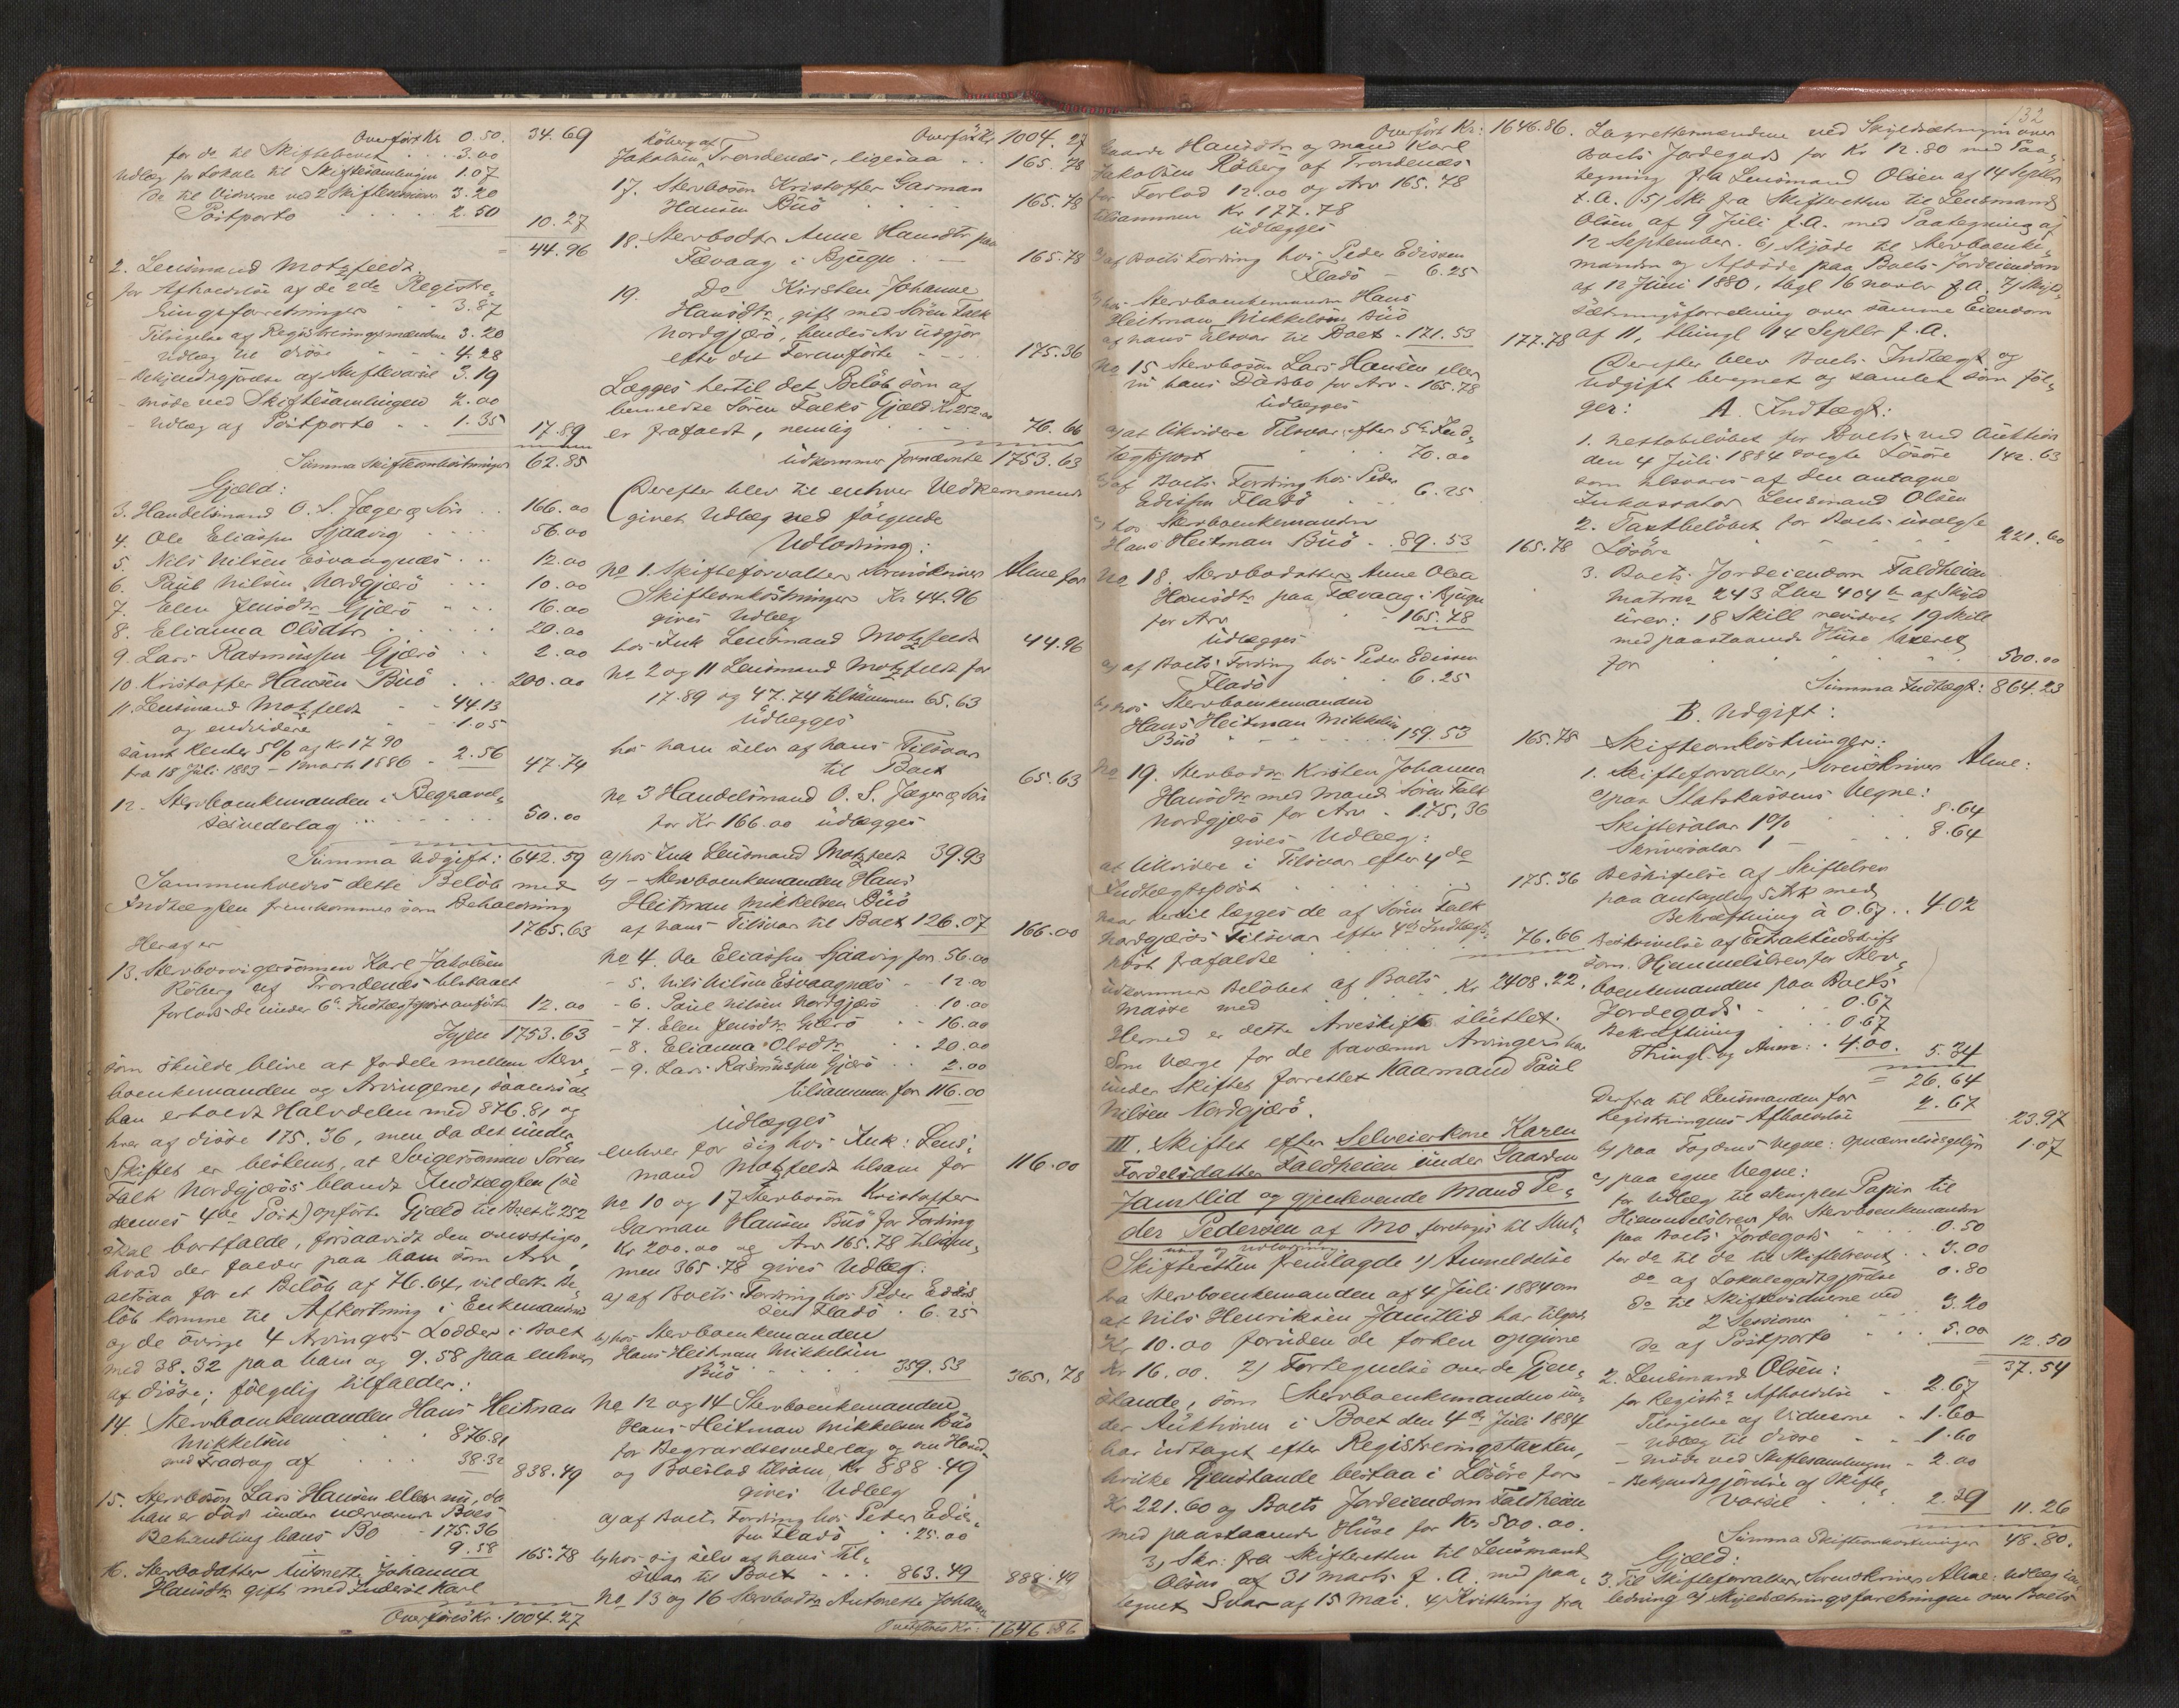 Overført Kr 0.50. 34.69
for do til Skiftebrevet 3.00
Udlæg for Lokale til Skiftesamlingen 1.07
do til Vidnerne ved 2 Skiftesessioner 3.20
Postporto 2.50 10.27
= 44.96
2. Lensmand Motzfeldt
for Afholdelse af de 2de Registre-
ringsforretninger 3.87
Tilsigelse af Registreringsmændene 3.20
- Udlæg til disse 4.28
- Bekjendtgjørelse af Skiftevarsel 3.19
- Møde ved Skiftesamlingen 2.00
- Udlæg af Postporto 1.35 17.89
Summa Skifteomkostninger 62.85
Gjæld:
3. Handelsmand O. S. Jæger & Søn 166.00
4. Ole Eliassen Sjaavig 56.00
5. Nils Nilsen Esvaagnæs 12.00
6. Paul Nilsen Nordgjærø 10.00
7. Elen Jensdtr Gjærø 16.00
8. Elianna Olsdtr 20.00
9. Lars Rasmussen Gjærø 2.00
10. Kristoffer Hansen Buø 200.00
11. Lensmand Motzfeldt 44.13
og endvidere 1.05
samt Renter 5% af Kr 17.90
fra 18 Juli 1883 - 1 Marts 1886 - 2.56 47.74
12. Stervboenkemanden i Begravel-
sesvederlag 50.00
Summa Udgift: 642.59
Sammenholdes dette Beløb med
Indtægten fremkommer som Beholdning
1765.63
Heraf er
13. Stervbosvigersønnen Karl Jakobsen
Røberg af Trondenæs tilstaaet
Forlods de under 6te Indtægtspost anførte 12.00
Igjen 1753.63
som skulde blive at fordele mellem Sterv-
boenkemanden og Arvingerne, saaledes at
han erholdt Halvdelen med 876.81 og
hver af disse 175.36, men da det under
Skiftet er bestemt, at Svigersønnen Søren
Falk Nordgjærøs blandt Indtægten (se
dennes 4de Post) opførte Gjæld til Boet Kr 252
skal bortfalde, forsaavidt den overstiger,
hvad der falder paa ham som Arv,
altsaa for et Beløb af 76.64, vil dette Be-
løb komme til Afkortning i Enkemandens
og de øvrige 4 Arvingers Lodder i Boet
med 38.32 paa ham og 9.58 paa enhver
af disse; følgelig tilfalder:
14. Stervboenkemanden Hans Heitman
Mikkelsen 876.81
med Fradrag af 38.32 838.49
15. Stervbosøn Lars Hansen eller nu, da
han er død under nærværende Boes
Behandling hans Bo - 175.36
9.58 165.78
16. Stervbodatter Antonette Johanna
Hansdtr gift med Inderst Karl
Overføres Kr. 1004.27
Overført Kr. 1004.27
Røberg af
Jakobsen, Trondenæs, ligesaa 165.78
17. Stervbosøn Kristoffer Garman
Hansen Buø 165.78
18. Stervbodtr Anne Hansdtr paa
Fævaag i Bjugn 165.78
19. Do Kirsten Johanne
Hansdtr, gift med Søren Falk
Nordgjærø, hendes Arv udgjør
efter det Foranførte 175.36
Lægges hertil det Beløb som af
bemeldte Søren Falks Gjæld Kr 252.00
er frafaldt, nemlig 76.66
udkommer fornævnte 1753.63
Derefter blev til enhver Vedkommende
givet Udlæg ved følgende
Udlodning:
No 1. Skifteforvalter Sorenskriver Alme for
Skifteomkostninger Kr 44.96
gives Udlæg
hos Ink Lensmand Motzfeldt 44.96
No 2 og 11 Lensmand Motzfeldt for
17.89 og 47.74 tilsammen 65.63
udlægges
hos ham selv af hans Tilsvar
til Boet 65.63
No 3 Handelsmand O. S. Jæger & Søn
for Kr 166.00 udlægges
a) hos Ink Lensmand Motzfeldt 39.93
b) - Stervboenkemanden Hans
Heitman Mikkelsen Buø
af hans Tilsvar til Boet 126.07 166.00
No 4. Ole Eliassen Sjaavig for 56.00
- 5. Nils Nilsen Esvaagnæs - 12.00
- 6. Paul Nilsen Nordgjærø - 10.00
- 7. Elen Jensdtr Gjærø - 16.00
- 8. Elianna Olsdtr 20.00
- 9. Lars Rasmussen Gjærø 2.00
tilsammen for 116.00
udlægges
enhver for sig hos Ink: Lens-
mand Motzfeldt tilsam for 116.00
No 10 og 17 Stervbosøn Kristoffer
Garman Hansen Buø for Fordring
Kr 200.00 og Arv 165.78 tilsam-
men 365.78 gives Udlæg:
a) af Boets Fordring hos Peder Edis-
sen Fladø 6.25
b) hos Stervboenkemanden
Hans Heitman Mikkelsen
Buø 359.53 365.78
No 12 og 14 Stervboenkemanden
Hans Heitman Mikkelsen Buø
for Begravelsesvederlag og sin Hoved
og Boeslod tilsam. Kr 888.49
gives Udlæg
a) af Boets Fordring hos Peder Edis-
sen Fladø 25.00
b) hos sig selv af hans Til-
svar til Boet 863.49 888.49
No 13 og 16 Stervbodtr Antonette Johanna
Overføres Kr. 1646.86
132
Overført Kr: 1646.86.
Hansdtr og Mand Karl
Jakobsen Røberg af Trondenæs
for Forlod 12.00 og Arv 165.78
tilsammen Kr 177.78
udlægges
a) af Boets Fordring hos Peder Edissen
Fladø - 6.25
b) hos Stervboenkemanden Hans
Heitman Mikkelsen Buø
af hans Tilsvar til Boet - 171.53 177.78
No 15 Stervbosøn Lars Hansen eller
nu hans Dødsbo for Arv - 165.78
udlægges
a) at likvidere Tilsvar efter 5te Ind-
tægtspost 70.00
b) af Boets Fordring hos Peder
Edissen Fladø 6.25
c) hos Stervboenkemanden
Hans Heitman Buø - 89.53 165.78
No 18. Stervbodatter Anne Olea
Hansdtr paa Fævaag i Bjugn
for Arv 165.78
udlægges
a) af Boets Fordring hos Peder Edissen
Fladø 6.25
b) hos Stervboenkemanden
Hans Heitman Mikkelsen
Buø 159.53 165.78
No 19. Stervbodtr Kirsten Johanna
Hansdtr med Mand Søren Falk
Nordgjærø for Arv - 175.36
gives Udlæg:
at likvidere i Tilsvar efter 4de
Indtægtspost 175.36
naar hertil lægges de af Søren Falk
Nordgjærøs Tilsvar efter 4de Indtægts-
post frafaldte 76.66
udkommer Beløbet af Boets
Masse med Kr 2408.22.
Hermed er dette Arveskifte sluttet.
Som Værge for de fraværende Arvinger har
under Skiftet forrettet Kaarmand Paul
Nilsen Nordgjærø.
III. Skiftet efter Selveierkone Karen
Tordelsdatter Faldheien under Gaarden
Jamtlid og gjenlevende Mand Pe-
der Pedersen af Mo foretages til Slut-
ning og Udlodning.
Skifteretten fremlagde 1) Anmeldelse
fra Stervboenkemanden af 4 Juli 1884 om
at Nils Henriksen Jamtlid har tilgode
Kr 10.00 foruden de forhen opgivne
Kr 16.00. 2) Fortegnelse over de Gjen-
stande, som Stervboenkemanden un-
der Auktionen i Boet den 4de Juli 1884
har udtaget efter Registreringstaxten,
hvilke Gjenstande bestaa i Løsøre for
Kr 221.60 og Boets Jordeiendom Faldheien
med paastaaende Huse for Kr 500.00.
3) Skr: fra Skifteretten til Lensmand
Olsen af 31 Marts f. A. med paa-
tegnet Svar af 15 Mai. 4) Kvittering fra
Lagrettemændene ved Skyldsætningen over
Boets Jordegods for Kr 12.80 med Paa-
tegning fra Lensmand Olsen af 14 Septbr
f. A. 5) Skr fra Skifteretten til Lensmand
Olsen af 9 Juli f. A. med Paategning af
12 September. 6) Skjøde til Stervboenke-
manden og Afdøde paa Boets Jordeiendom
af 12 Juni 1880, thgl 16 Novbr f. A. 7) Skyld-
sætningsforretning over samme Eiendom
af 11, thingl 14 Septbr f. A.
Derefter blev Boets Indtægt og
Udgift beregnet og samlet som føl-
ger:
A. Indtægt:
1. Nettobeløbet for Boets ved Auktion
den 4 Juli 1884 solgte Løsøre 142.63
som tilsvares af den antagne
Inkassator Lensmand Olsen
2. Taxtbeløbet for Boets usolgte
Løsøre 221.60
3. Boets Jordeiendom Faldheien
Matrno 243 Lbno 404 b af Skyld
urev: 18 Skill revideret 19 Skill
med paastaaende Huse taxeret
for 500.00
Summa Indtægt: 864.23
B. Udgift:
Skifteomkostninger:
1. Skifteforvalter, Sorenskriver Alme:
a) paa Statskassens Vegne:
Skiftesalar 1% 8.64
Skriversalar 1 - 8.64
Beskrivelse af Skiftebrev
paa antagelig 5 Ark med
Bekræftning à 0.67 4.02
Beskrivelse af Extraktudskrift
som Hjemmelsbrev for Sterv-
boenkemanden paa Boets
Jordegods 0.67
Bekræftning 0.67
Thingl. og Anm: 4.00. 5.34
= 26.64
Derfra til Lensmanden for
Registreringens Afholdelse 2.67 23.97
b) paa Fogdens Vegne: Opnævnelsesgebyr 1.07
c) paa egne Vegne:
for Udlæg til stemplet Papir til
Hjemmelsbrev for Stervboenkemanden
paa Boets Jordegods 0.50
for do til do til Skiftebrevet 3.00
do af Lokalegodtgjørelse 0.80
do til Skiftevidnerne ved
2 Sessioner 3.20
do af Postporto 5.00 12.50
= 37.54
2. Lensmand Olsen:
for Registrs Afholdelse - 2.67
- Tilsigelse af Vidnerne - 1.60
- Udlæg til disse 1.60
- Møde ved Skiftesamlingen - 2.00
- Bekjendtgjørelse af Skifte-
varsel 2.39 11.26
Summa Skifteomkostninger 48.80.
Gjæld:
3. Til Skifteforvalter, Sorenskriver Alme: Udlæg i an-
ledning af Skyldsætningsforretningen over Boets